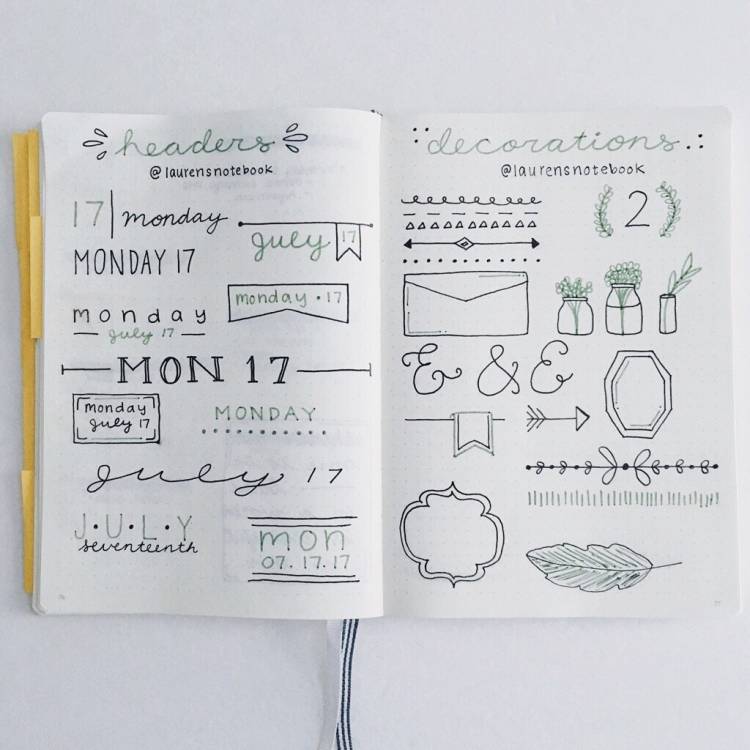 headers
@laurensnotebook
17 | monday
july 17
MONDAY 17
monday
july 17
monday • 17
MON 17
monday
july 17
MONDAY
july 17
J•U•L•Y
seventeenth
mon
07.17.17
decorations
@laurensnotebook
2
& & &